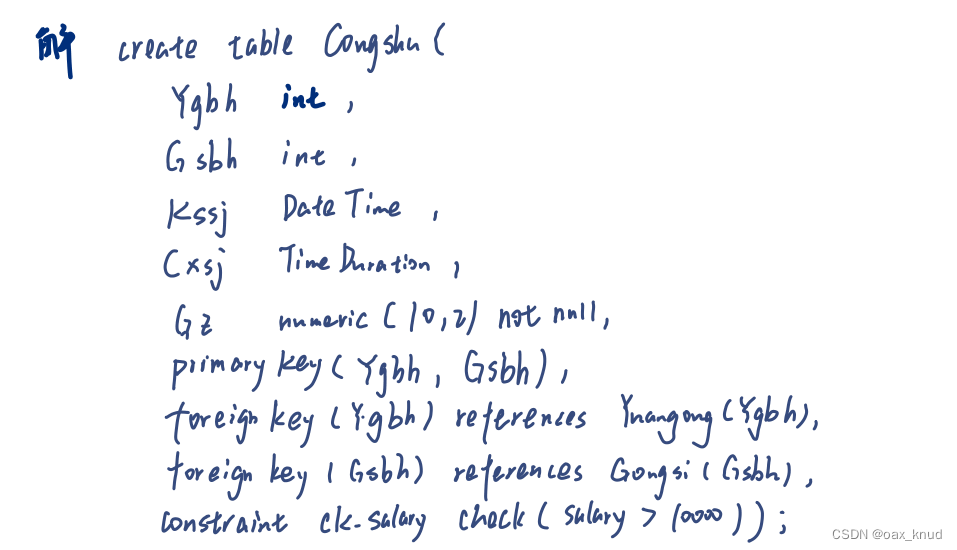 解 create table Congshu (
Ygbh int ,
Gsbh int ,
Kssj DateTime ,
Cxsj TimeDuration ,
Gz numeric (10,2) not null,
primary key ( Ygbh , Gsbh ) ,
foreign key ( Ygbh ) references Ynangong (Ygbh),
foreign key ( Gsbh ) references Gongsi ( Gsbh ) ,
constraint ck-salary check ( salary > 10000 ) ) ;
CSDN @oax_knud